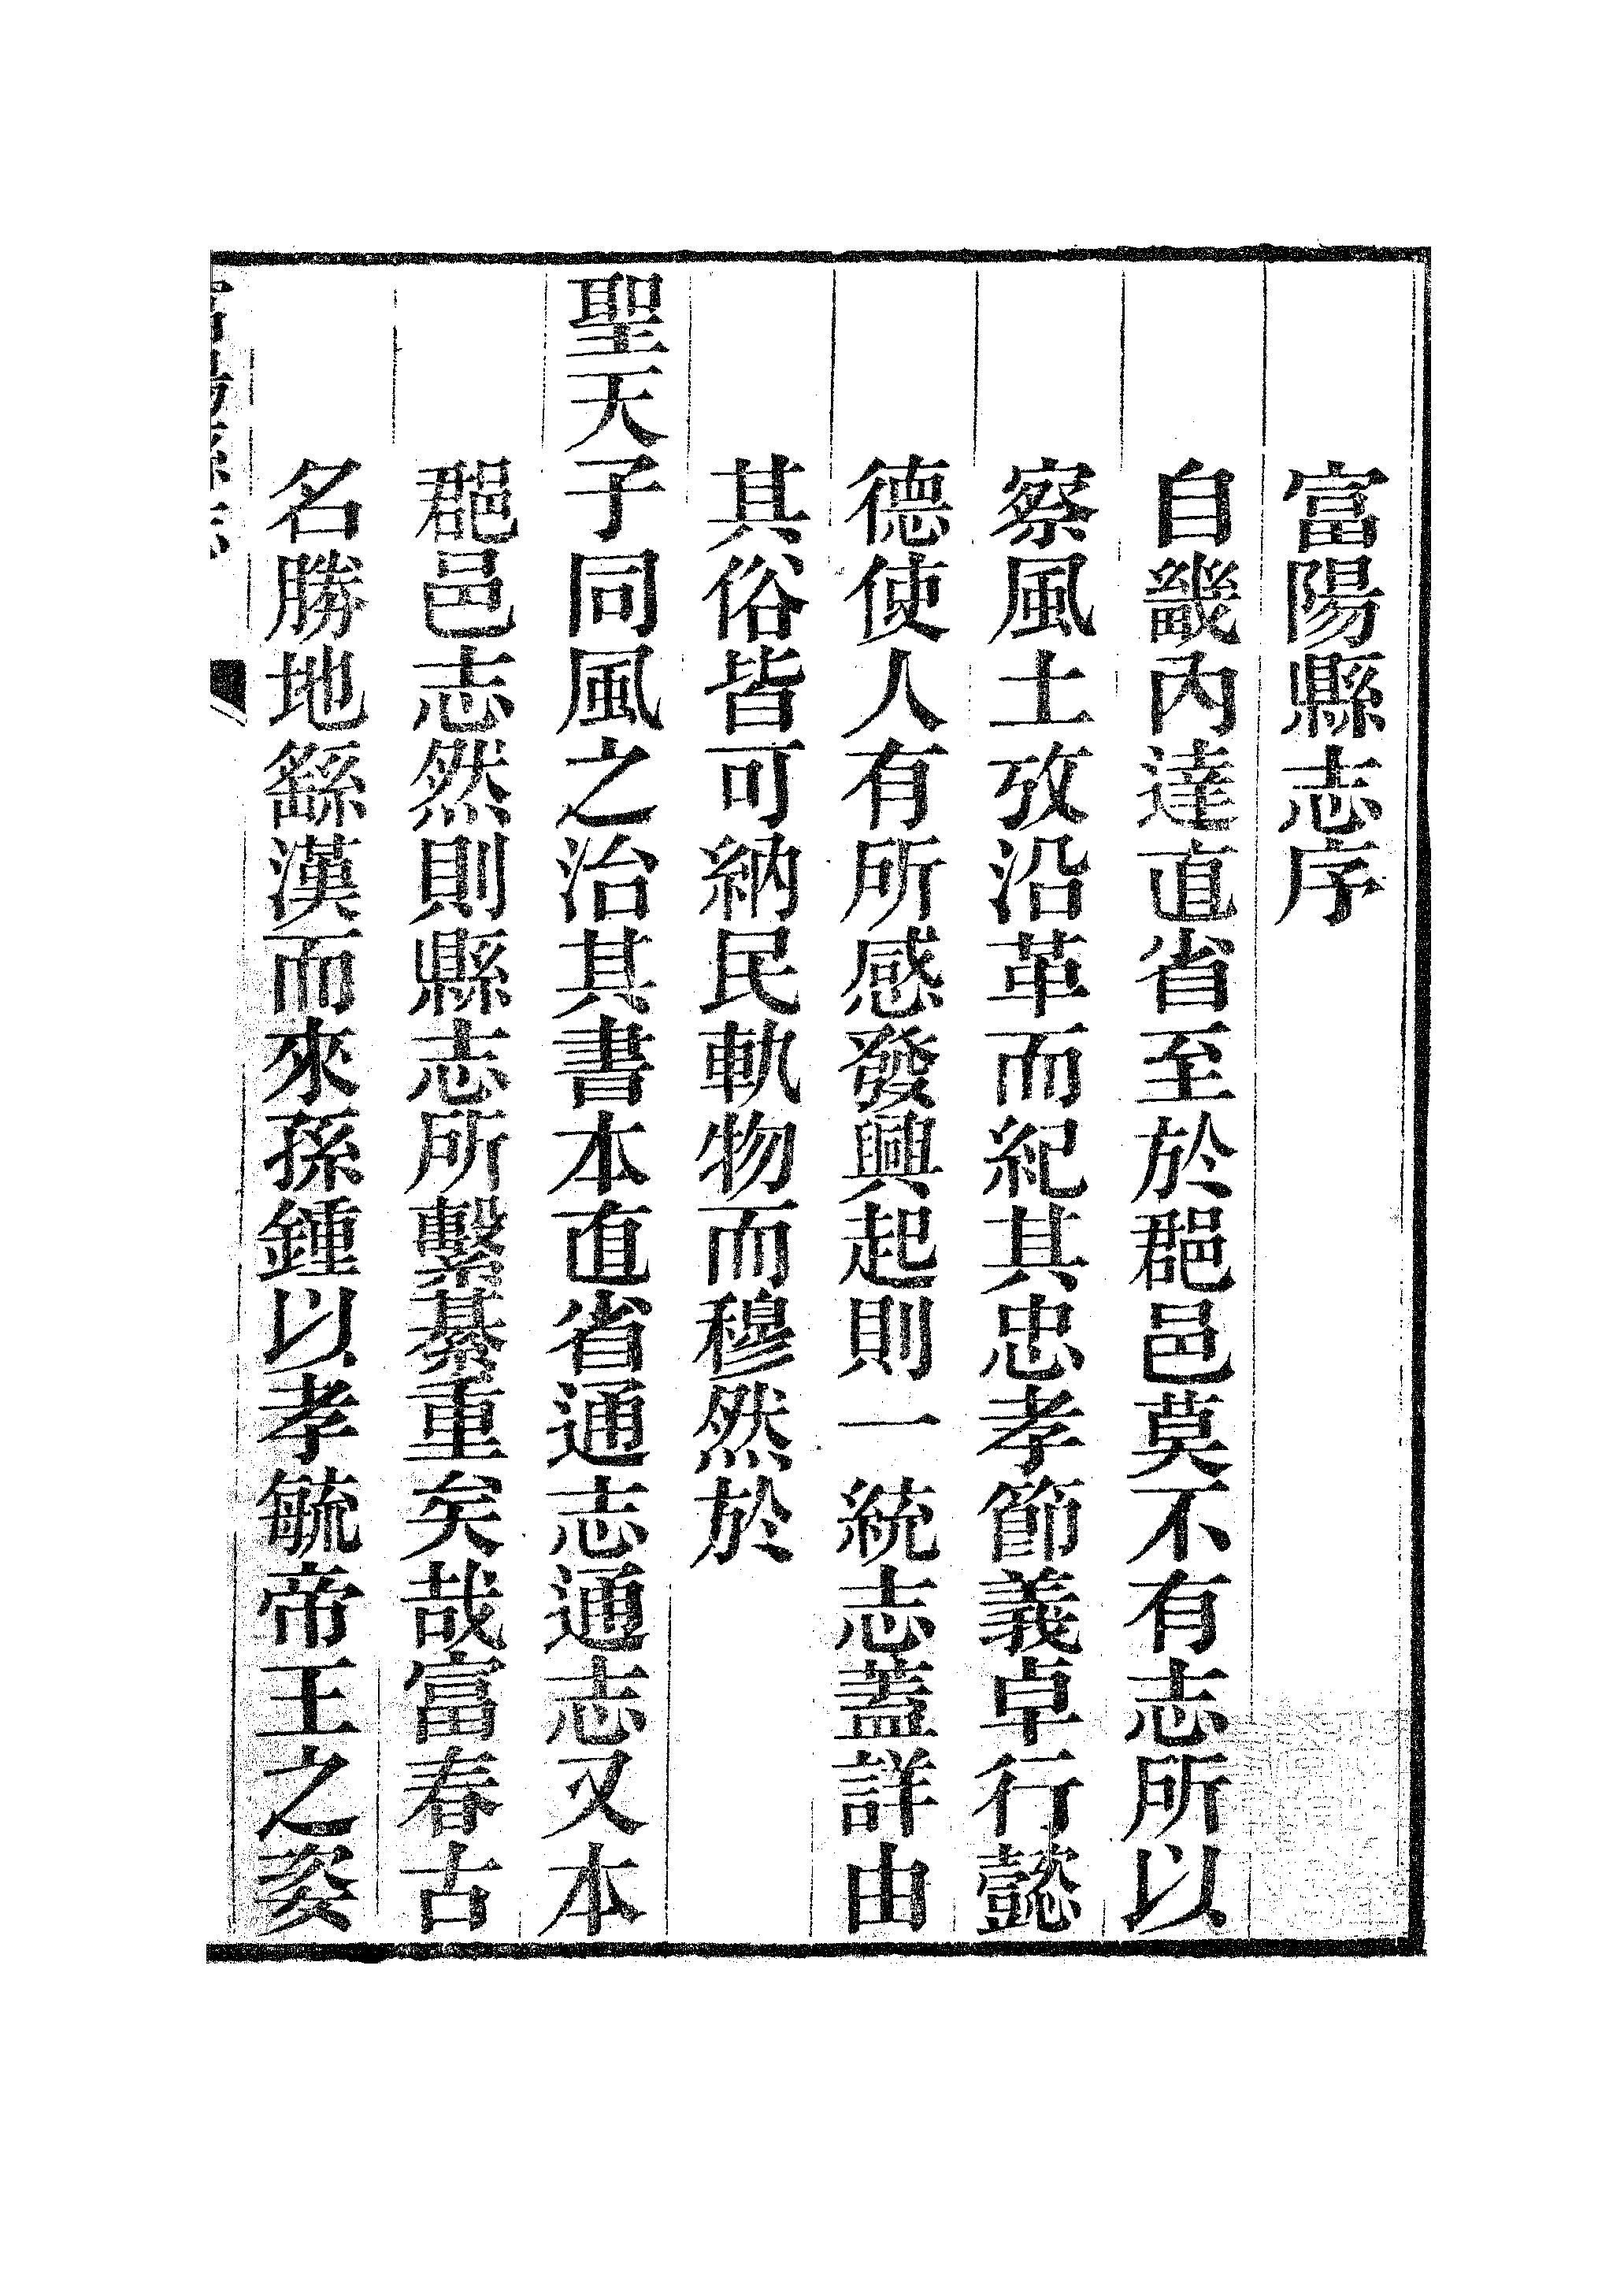 富陽縣志序
自畿內達直省至於郡邑莫不有志所以
察風土攷沿革而紀其忠孝節義卓行懿
德使人有所感發興起則一統志蓋詳由
其俗皆可納民軌物而穆然於
聖天子同風之治其書本直省通志通志又本
郡邑志然則縣志所繫綦重矣哉富春古
名勝地繇漢而來孫鍾以孝毓帝王之姿